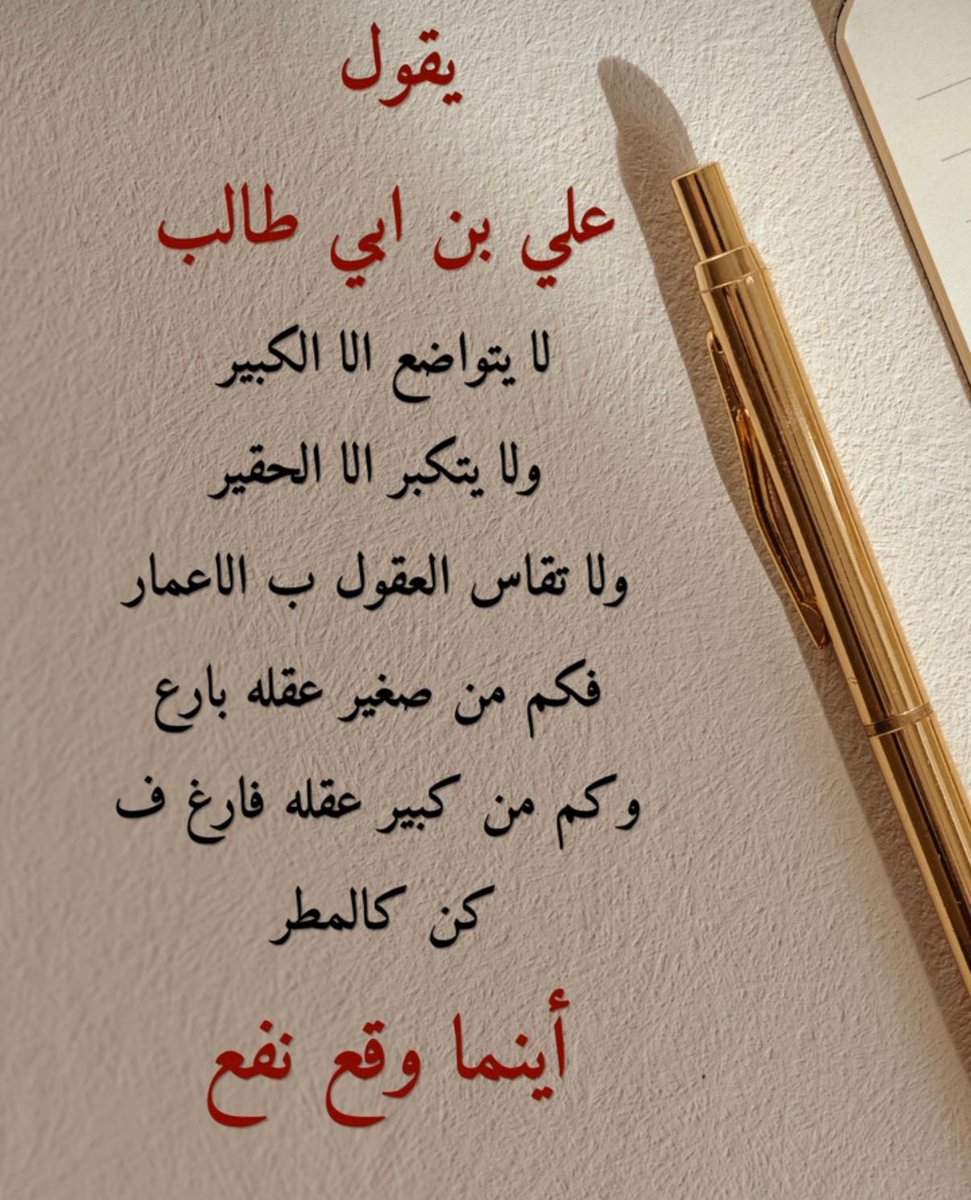 يقول
علي بن ابي طالب
لا يتواضع الا الكبير
ولا يتكبر الا الحقير
ولا تقاس العقول ب الاعمار
فكم من صغير عقله بارع
وكم من كبير عقله فارغ ف
كن كالمطر
أينما وقع نفع